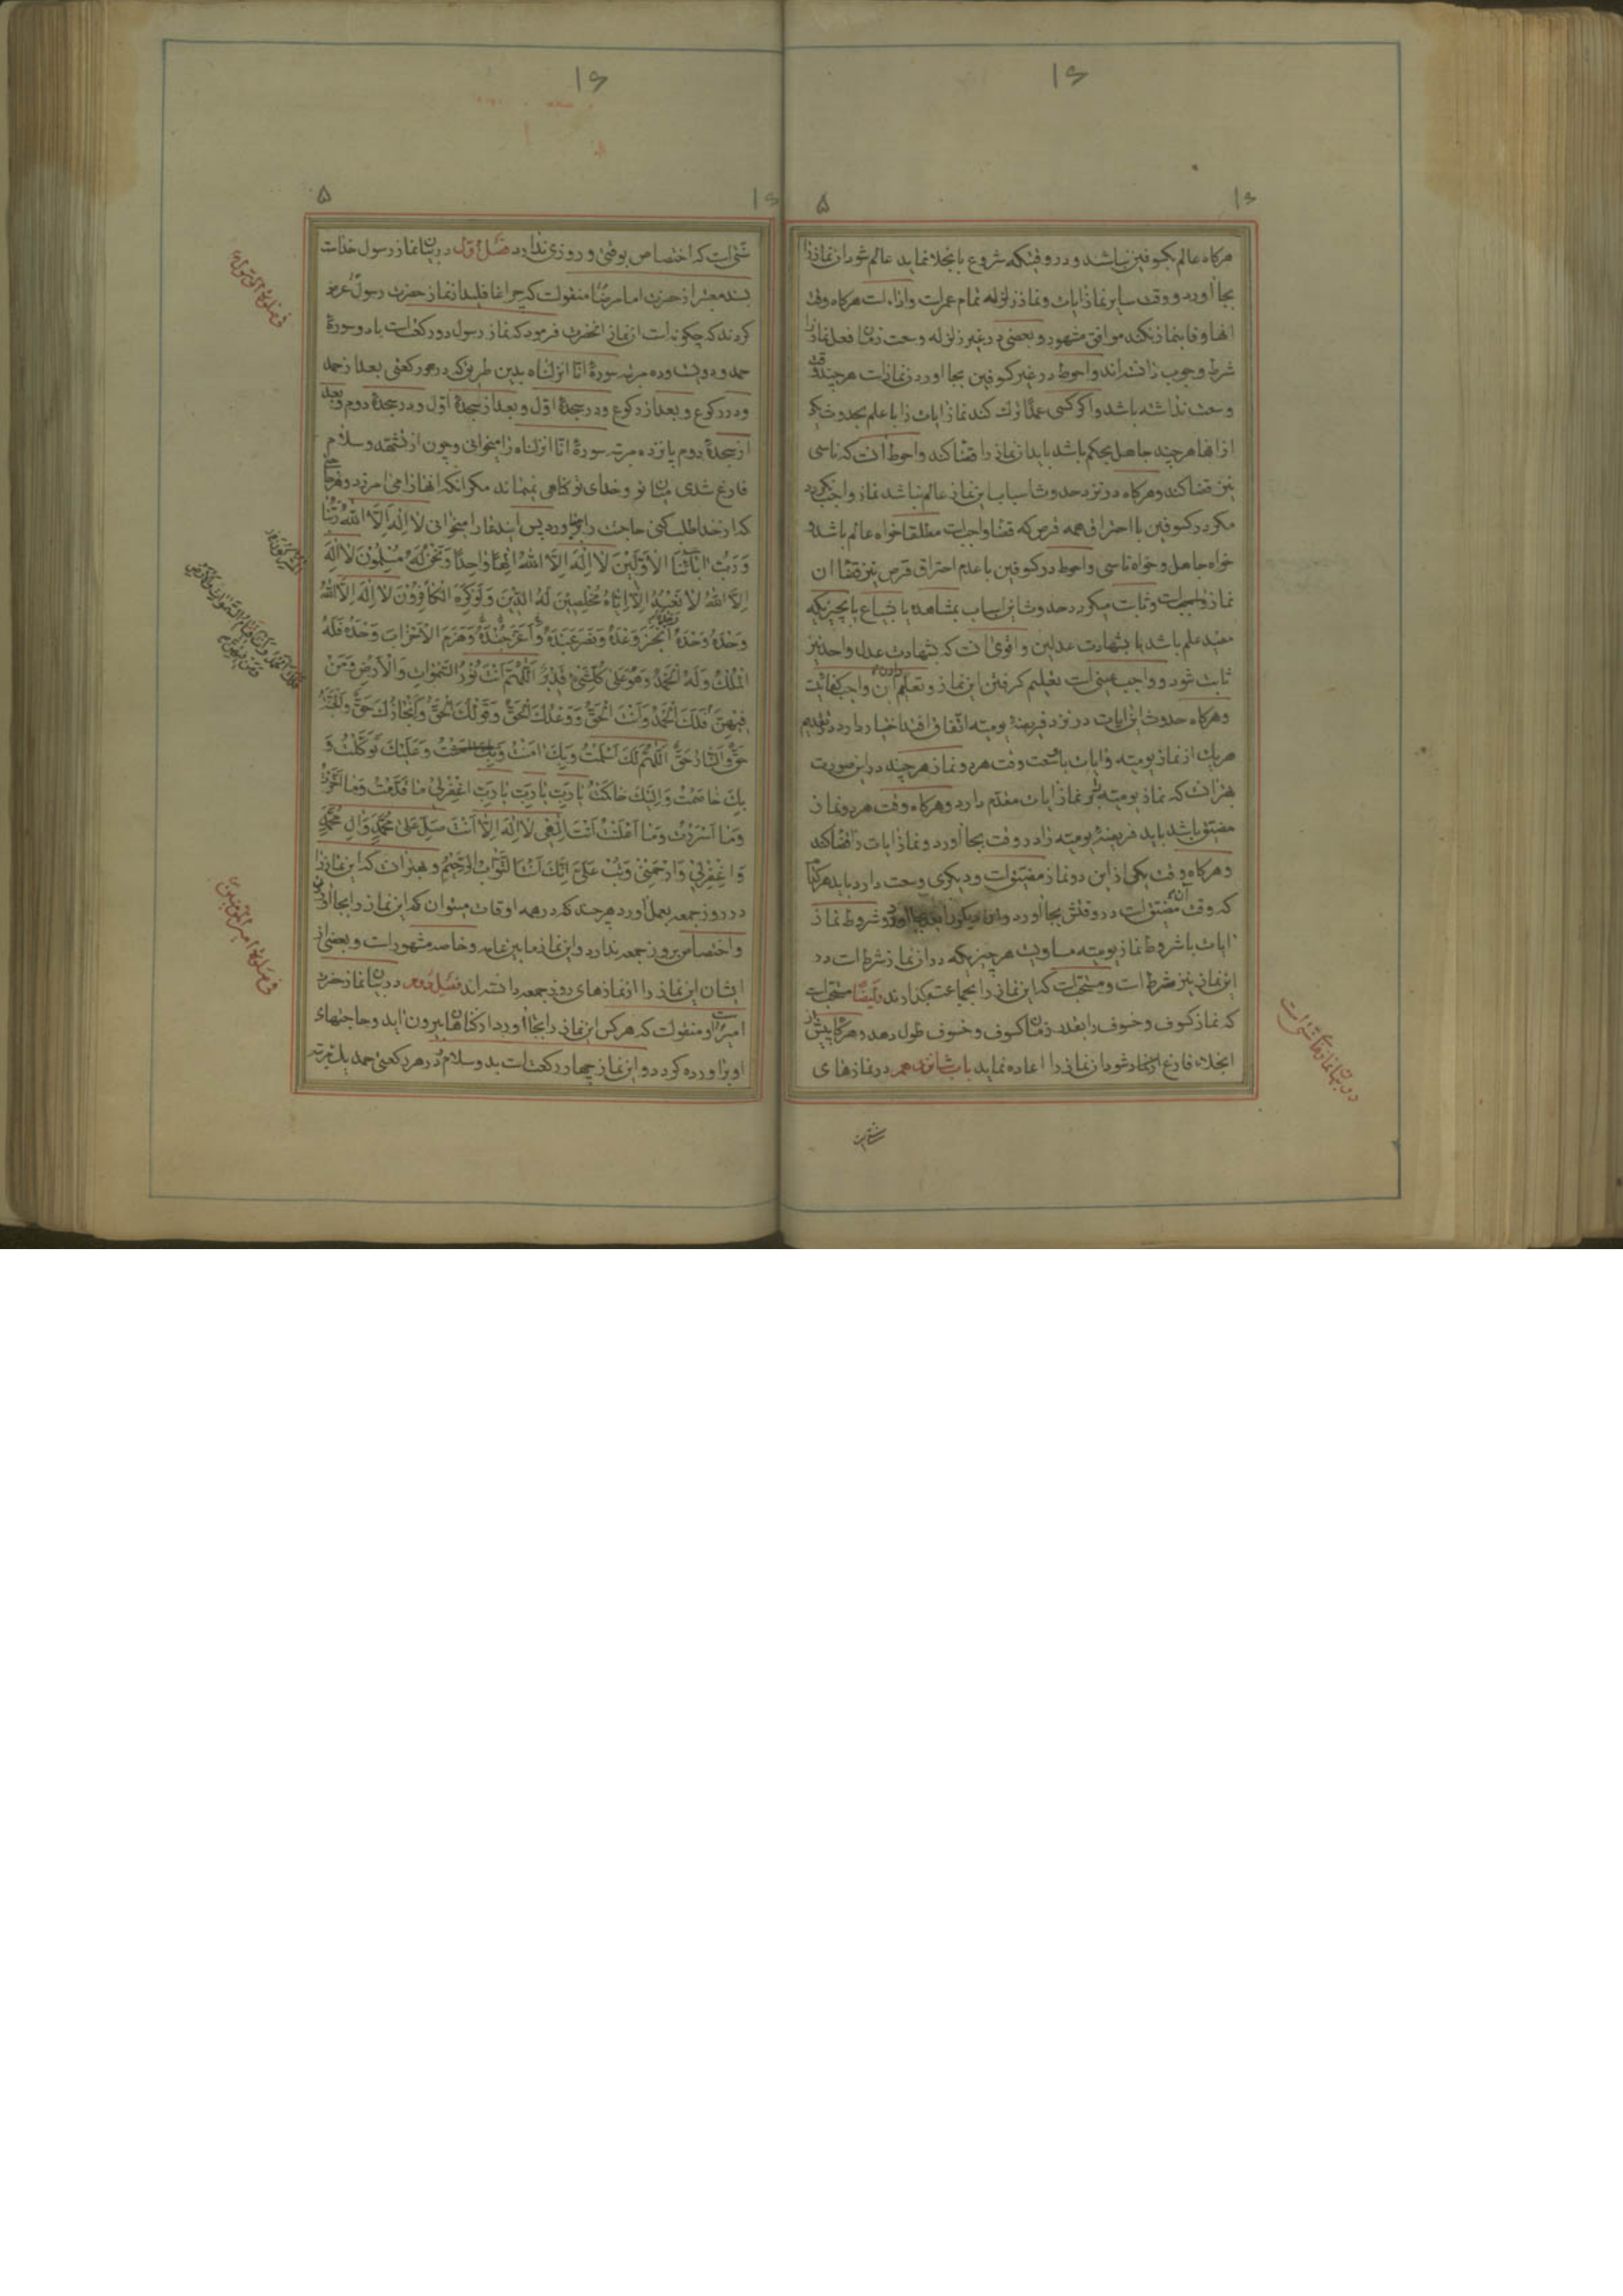 هرکاه عالم بکسوفین نباشد و در وقتیکه شروع بانجلا نماید عالم شود ان نماز را
بجا اورد و وقت سایر نماز ایات و نماز زلزله تمام عمر است و اداء است هرکاه وقت
انها وفا بنماز نکند موافق مشهور و بعضی در غیر زلزله وسعت زمان فعل نماز را
شرط وجوب دانسته اند و احوط در غیر کسوفین بجا اوردن نماز است هر چند وقت
وسعت نداشته باشد و اکر کسی عمدًا ترک کند نماز ایات را با علم بحدوث یکی
از انها هر چند جاهل بحکم باشد باید ان نماز را قضا کند و احوط انست که ناسی
نیز قضا کند و هرکاه در نزد حدوث اسباب این نماز عالم نباشد نماز واجب نکردد
مکر در کسوفین با احتراق همه قرص که قضا واجبست مطلقا خواه عالم باشد و
خواه جاهل و خواه ناسی و احوط در کسوفین با عدم احتراق قرص نیز قضا ان
نماز واجبست و ثابت میکردد حدوث این اسباب بمشاهده یا شیاع یا بچیزیکه
مفید علم باشد یا بشهادت عدلین و اقوی انست که بشهادت عدل واحد نیز
ثابت شود و واجب عینی است تعلیم کرفتن این نماز و تعلیم دادن ان واجب کفائیست
و هرکاه حدوث این ایات در نزد فریضهٔ یومیه اتفاق افتد اختیار دارد در تقدیم
هریک از نماز یومیه و ایات با سعت وقت هر دو نماز هر چند در این صورت
بهتر انست که نماز یومیه بر نماز ایات مقدم دارد و هرکاه وقت هر دو نماز
مضیق باشد باید فریضهٔ یومیه را در وقت بجا اورد و نماز ایات را قضا کند
و هرکاه وقت یکی از این دو نماز مضیق است و دیکری وسعت دارد باید هر کدام
که وقت آن مضیق است در وقتش بجا اورد و ان دیکر را بعد بجا اورد و شروط نماز
ایات با شروط نماز یومیه مساویست هر چیزیکه در ان نماز شرط است در
این نماز نیز شرط است و مستحب است که این نماز را بجماعت بکذارند و ایضًا مستحب است
که نماز کسوف و خسوف را بقدر زمان کسوف و خسوف طول دهد و هرکاه پیش از
انجلاء فارغ از نماز شود ان نماز را اعاده نماید باب شانزدهم در نمازهای
سنتی است که اختصاص بوقتی و روزی ندارد فصل اول در بیان نماز رسول خداست
بسند معتبر از حضرت امام رضا منقولست که چرا غافلید از نماز حضرت رسول عرض
کردند که چکونه است ان نماز انحضرت فرمود که نماز رسول دو رکعت است با دو سورهٔ
حمد و دویست و ده مرتبه سورهٔ انا انزلناه بدین طریق که در هر رکعتی بعد از حمد
و در رکوع و بعد از رکوع و در سجدهٔ اوّل و بعد از سجدهٔ اوّل و در سجدهٔ دوم و بعد
از سجدهٔ دوم پانزده مرتبه سورهٔ انا انزلناه را میخوانی و چون از تشهد و سلام
فارغ شدی میان تو و خدای تو کناهی نمیماند مکر انکه انها را می امرزد و هر حاجتی
که از خدا طلب کنی حاجت را براورد پس این دعا را میخوانی لا اِلهَ اِلاَّ اللهُ رَبُّنا
وَرَبُّ ابائِنَا الْاَوَّلینَ لا اِلهَ اِلاَّ اللهُ اِلهًا واحِدًا وَنَحْنُ لَهُ مُسْلِمُونَ لا اِلهَ
اِلاَّ اللهُ لا نَعْبُدُ اِلاَّ اِیَّاهُ مُخْلِصینَ لَهُ الدّینَ وَلَوْ کَرِهَ الْکافِرُونَ لا اِلهَ اِلاَّ اللهُ
وَحْدَهُ وَحْدَهُ اَنْجَزَ وَعْدَهُ وَنَصَرَ عَبْدَهُ وَاَعَزَّ جُنْدَهُ وَهَزَمَ الْاَحْزابَ وَحْدَهُ فَلَهُ
الْمُلْکُ وَلَهُ الْحَمْدُ وَهُوَ عَلی کُلِّ شَیْءٍ قَدیرٌ اَللّهُمَّ اَنْتَ نُورُ السَّمواتِ وَالْاَرْضِ وَمَنْ
فیهِنَّ فَلَکَ الْحَمْدُ وَاَنْتَ الْحَقُّ وَوَعْدُکَ الْحَقُّ وَقَوْلُکَ الْحَقُّ وَاِنْجازُکَ حَقٌّ وَالْجَنَّةُ
حَقٌّ وَالنّارُ حَقٌّ اَللّهُمَّ لَکَ اَسْلَمْتُ وَبِکَ امَنْتُ وَعَلَیْکَ تَوَکَّلْتُ وَ
بِکَ خاصَمْتُ وَاِلَیْکَ حاکَمْتُ یا رَبِّ یا رَبِّ یا رَبِّ اغْفِرْ لی ما قَدَّمْتُ وَما اَخَّرْتُ
وَما اَسْرَرْتُ وَما اَعْلَنْتُ اَنْتَ اِلهی لا اِلهَ اِلاَّ اَنْتَ صَلِّ عَلی مُحَمَّدٍ وَالِ مُحَمَّدٍ
وَاغْفِرْ لی وَارْحَمْنی وَتُبْ عَلَیَّ اِنَّکَ اَنْتَ التَّوّابُ الرَّحیمُ و بهتر انست که این نماز را
در روز جمعه بعمل اورد هر چند که در همه اوقات میتوان که این نماز را بجا اوردن
و اختصاص بروز جمعه ندارد و این نماز مابین عامه و خاصه مشهور است و بعضی از
ایشان این نماز را از نمازهای روز جمعه دانسته اند فصل دوم در بیان نماز حضرت
امیر است و منقولست که هرکس این نماز را بجا اورد از کناهان بیرون اید و حاجتهای
او براورده کردد و این نماز چهار رکعت است بدو سلام در هر رکعتی حمد یک مرتبه